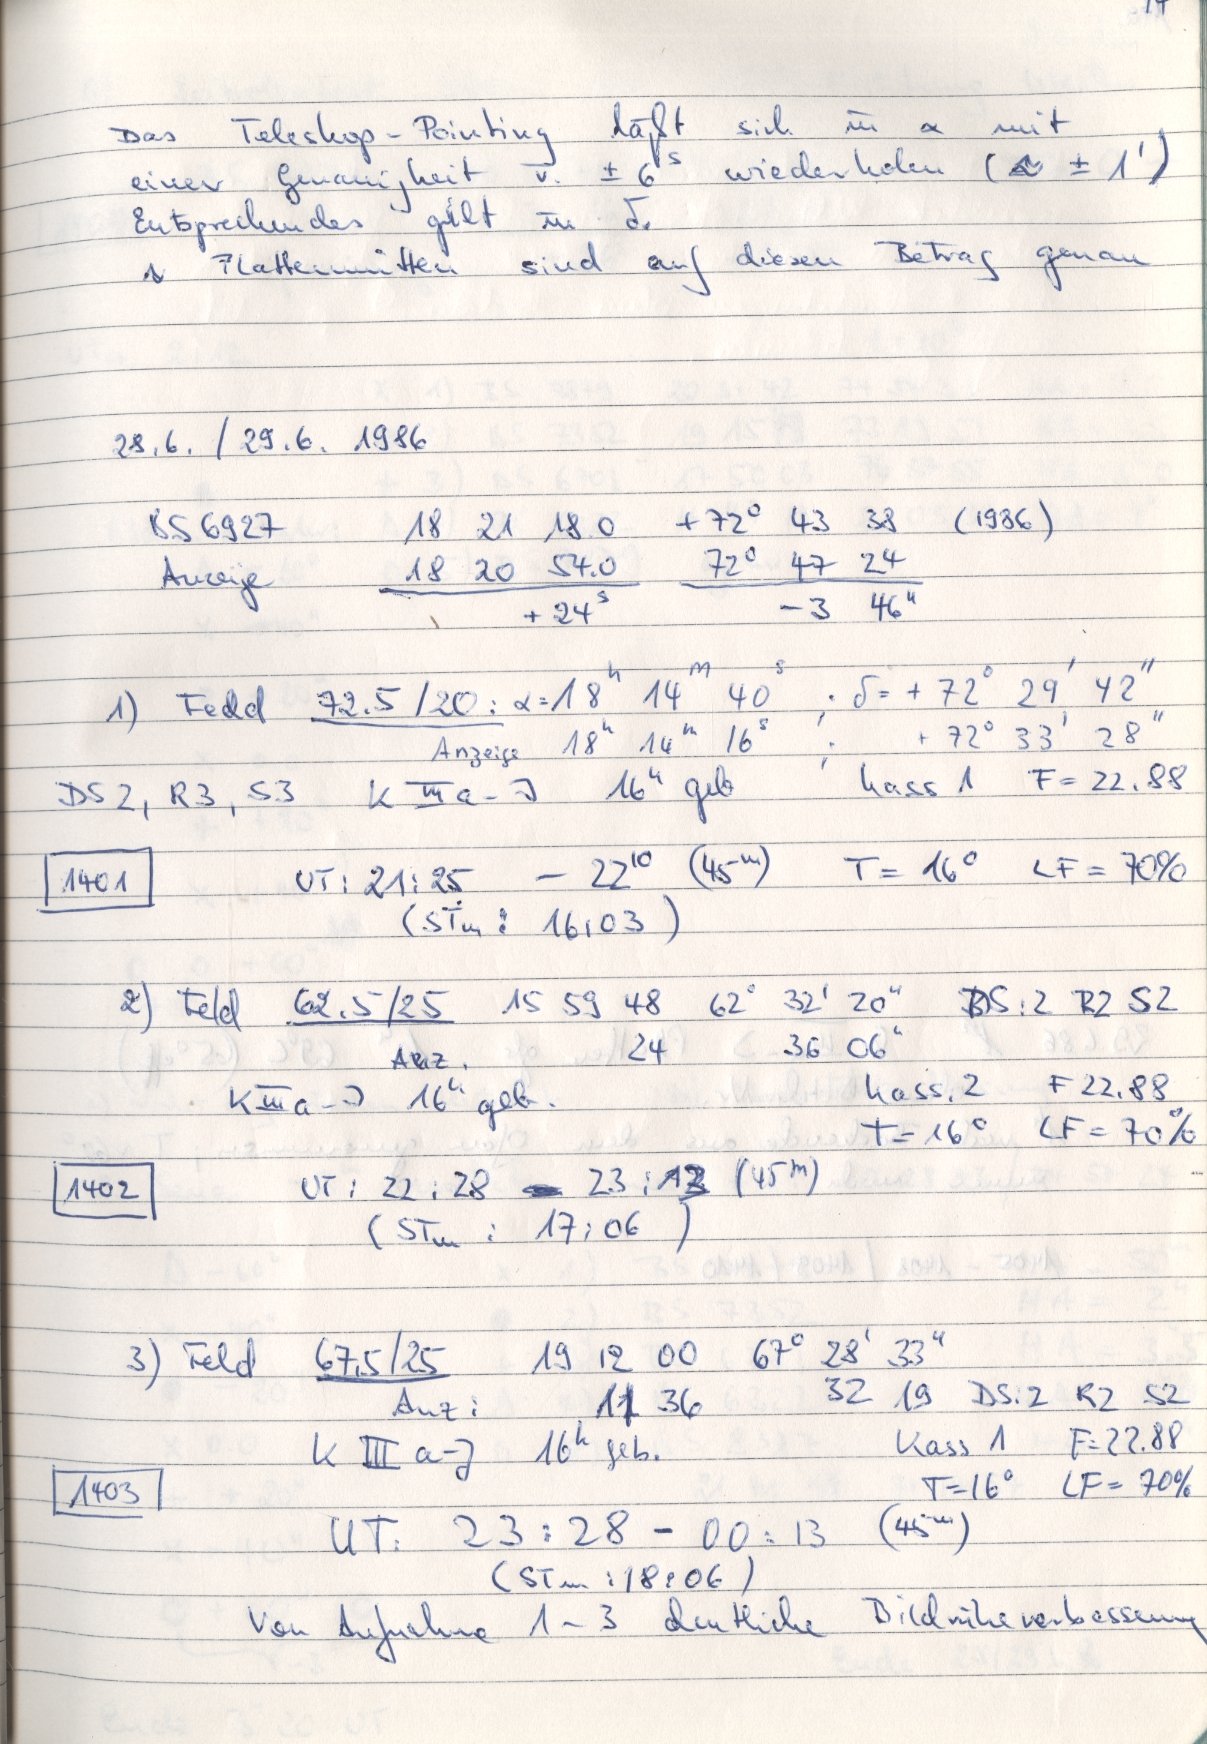 Das Teleskop-Pointing läßt sich in α mit
einer Genauigkeit v. ± 6ˢ wiederholen ( ± 1')
Entsprechendes gilt in δ.
Plattenmitten sind auf diesen Betrag genau
28.6. / 29.6. 1986
BS 6927 18 21 18.0 +72° 43 38 (1986)
Anzeige 18 20 54.0 72° 47 24
+ 24ˢ - 3 46"
1) Feld 72.5/20 : α = 18ʰ 14ᵐ 40ˢ ; δ = + 72° 29' 42"
Anzeige 18ʰ 14ᵐ 16ˢ ; + 72° 33' 28"
DS 2, R3, S3 K III a-J 16ʰ geb Kass 1 F = 22.88
1401 UT: 21:25 - 22¹⁰ (45ᵐ) T = 16° LF = 70%
(STm : 16:03)
2) Feld 62.5/25 15 59 48 62° 32' 20" DS:2 R2 S2
Anz. 24 36 06"
K III a-J 16ʰ geb. Kass. 2 F 22.88
T = 16° LF = 70%
1402 UT: 22:28 - 23:13 (45ᵐ)
(STm : 17:06)
3) Feld 67.5/25 19 12 00 67° 28' 33"
Anz: 11 36 32 19 DS:2 R2 S2
K III a-J 16ʰ geb. Kass 1 F=22.88
1403 T=16° LF = 70%
UT: 23:28 - 00:13 (45ᵐ)
(STm : 18:06)
Von Aufnahme 1 - 3 deutliche Bildruheverbesserung